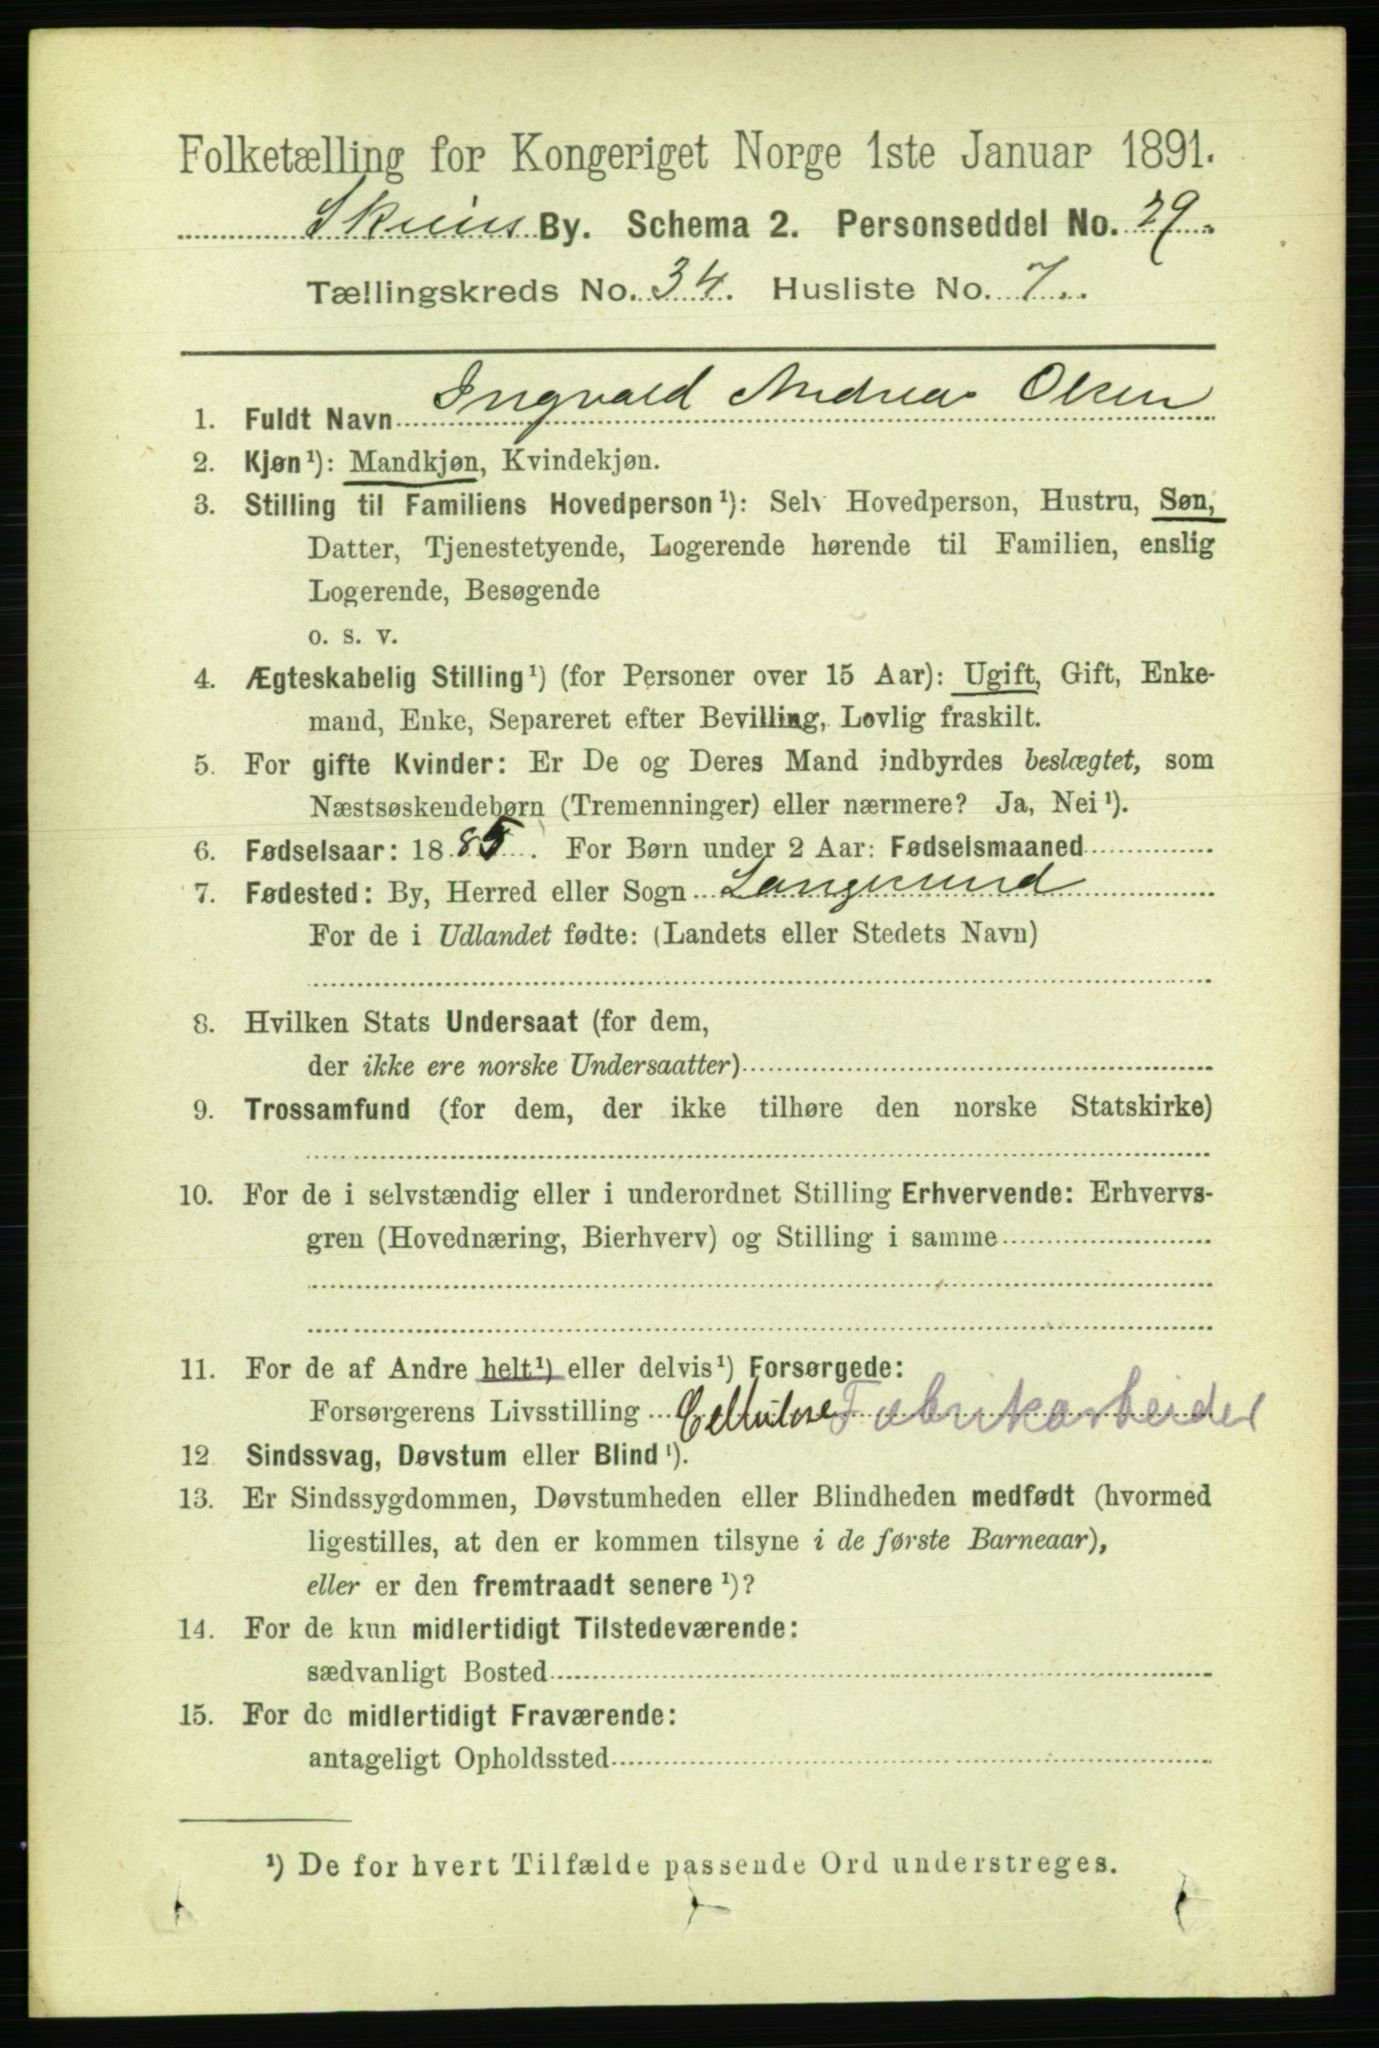 Folketælling for Kongeriget Norge 1ste Januar 1891.
Skiens By. Schema 2. Personseddel No. 29.
Tællingskreds No. 34. Husliste No. 7.
1. Fuldt Navn Ingvald Andreas Olsen
2. Kjøn¹): Mandkjøn, Kvindekjøn.
3. Stilling til Familiens Hovedperson¹): Selv Hovedperson, Hustru, Søn,
Datter, Tjenestetyende, Logerende hørende til Familien, enslig
Logerende, Besøgende
o. s. v.
4. Ægteskabelig Stilling¹) (for Personer over 15 Aar): Ugift, Gift, Enke-
mand, Enke, Separeret efter Bevilling, Lovlig fraskilt.
5. For gifte Kvinder: Er De og Deres Mand indbyrdes beslægtet, som
Næstsøskendebørn (Tremenninger) eller nærmere? Ja, Nei¹).
6. Fødselsaar: 1885. For Børn under 2 Aar: Fødselsmaaned
7. Fødested: By, Herred eller Sogn Langesund
For de i Udlandet fødte: (Landets eller Stedets Navn)
8. Hvilken Stats Undersaat (for dem,
der ikke ere norske Undersaatter)
9. Trossamfund (for dem, der ikke tilhøre den norske Statskirke)
10. For de i selvstændig eller i underordnet Stilling Erhvervende: Erhvervs-
gren (Hovednæring, Bierhverv) og Stilling i samme
11. For de af Andre helt¹) eller delvis¹) Forsørgede:
Forsørgerens Livsstilling Cellulose Fabrikarbeider
12. Sindssvag, Døvstum eller Blind¹).
13. Er Sindssygdommen, Døvstumheden eller Blindheden medfødt (hvormed
ligestilles, at den er kommen tilsyne i de første Barneaar),
eller er den fremtraadt senere¹)?
14. For de kun midlertidigt Tilstedeværende:
sædvanligt Bosted
15. For de midlertidigt Fraværende:
antageligt Opholdssted
¹) De for hvert Tilfælde passende Ord understreges.